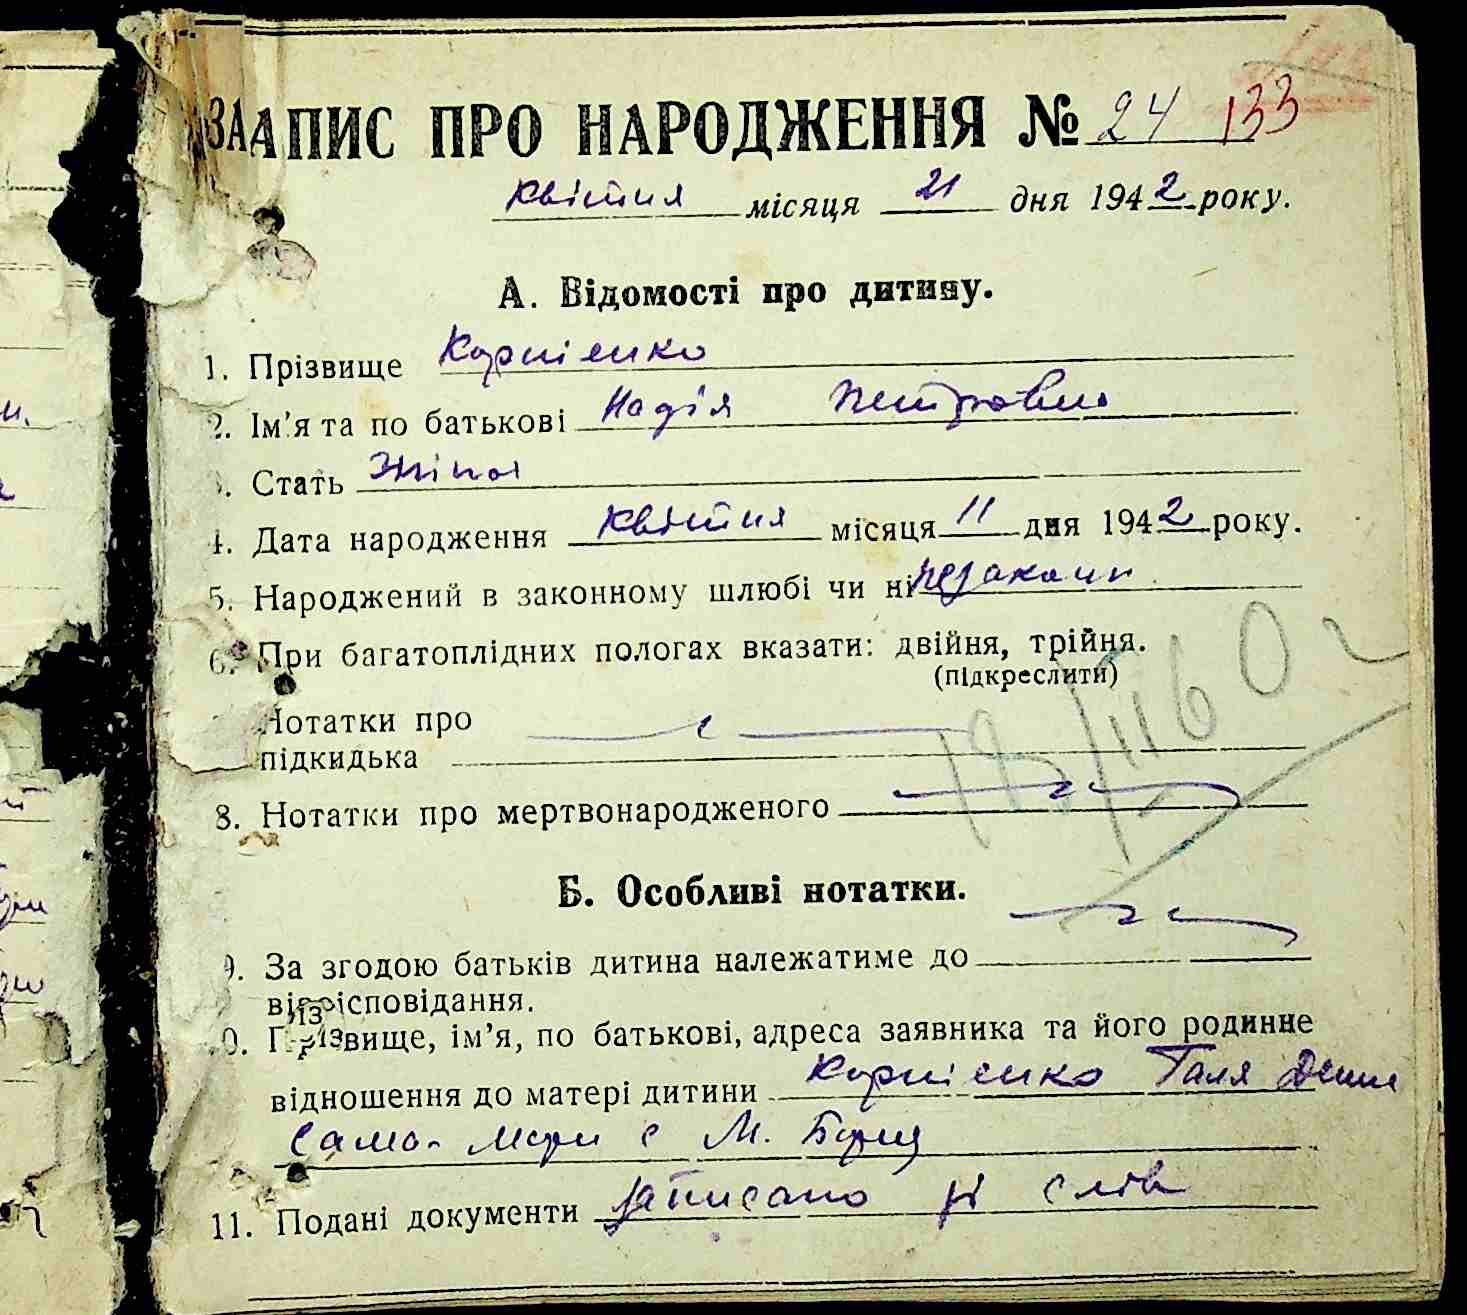 ЗААПИС ПРО НАРОДЖЕННЯ № 24 133
квітня місяця 21 дня 1942 року.
А. Відомості про дитину.
1. Прізвище Корнієнко
2. Ім'я та по батькові Надія Петровна
. Стать Жіноч
4. Дата народження квітня місяця 11 дня 1942 року.
5. Народжений в законному шлюбі чи ні незаконн
6. При багатоплідних пологах вказати: двійня, трійня.
(підкреслити)
Нотатки про
підкидька
8. Нотатки про мертвонародженого
Б. Особливі нотатки.
9. За згодою батьків дитина належатиме до
віросповідання.
0. Прізвище, ім'я, по батькові, адреса заявника та його родинне
відношення до матері дитини Корнієнко Галя
сама М.
11. Подані документи записано зі слів